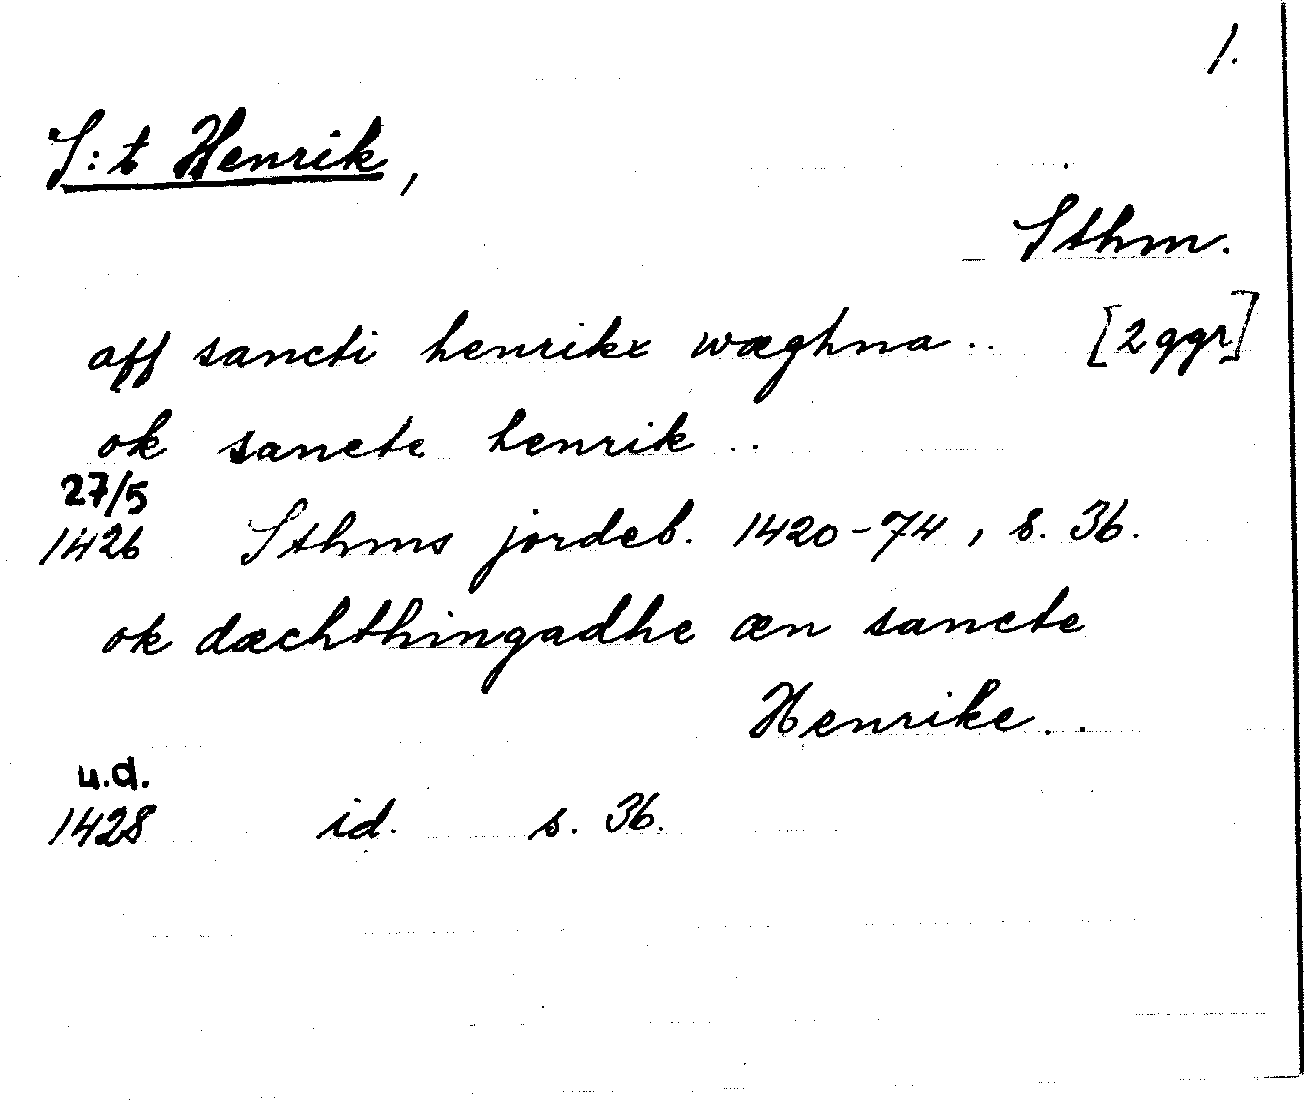 1.
S:t Henrik,
Sthm.
aff sancti henrikx wæghna.. [2 ggr]
ok sancte henrik ..
27/5
1426 Sthms jordeb. 1420-74, s. 36.
ok dæchthingadhe æn sancte
Henrike..
u.d.
1428 id. s. 36.